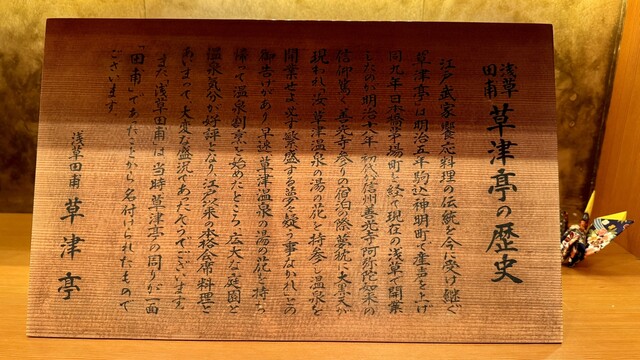 浅草田甫 草津亭の歴史
江戸武家饗応料理の伝統を今に受け継ぐ
「草津亭」は明治五年駒込神明町で産声を上げ
同九年日本橋茅場町を経て現在の浅草で開業
したのが明治十八年 初代が信州善光寺阿弥陀如来の
信仰篤く善光寺参りの宿泊の際 夢枕に大天女が
現われ「汝 草津温泉の湯の花を持参し温泉を
開業せよ 必ず繁盛する 夢々疑う事なかれ」との
御告げがあり早速 草津温泉の湯の花を持ち
帰って温泉割烹を始めたところ 広大な庭園と
温泉気分が好評となり 江戸以来の本格会席料理と
あいまって大変な盛況であったそうでございます。
また「浅草田甫」は当時草津亭の周りが一面
「田甫」であったことから名付けられたもので
ございます。
浅草田甫 草津亭